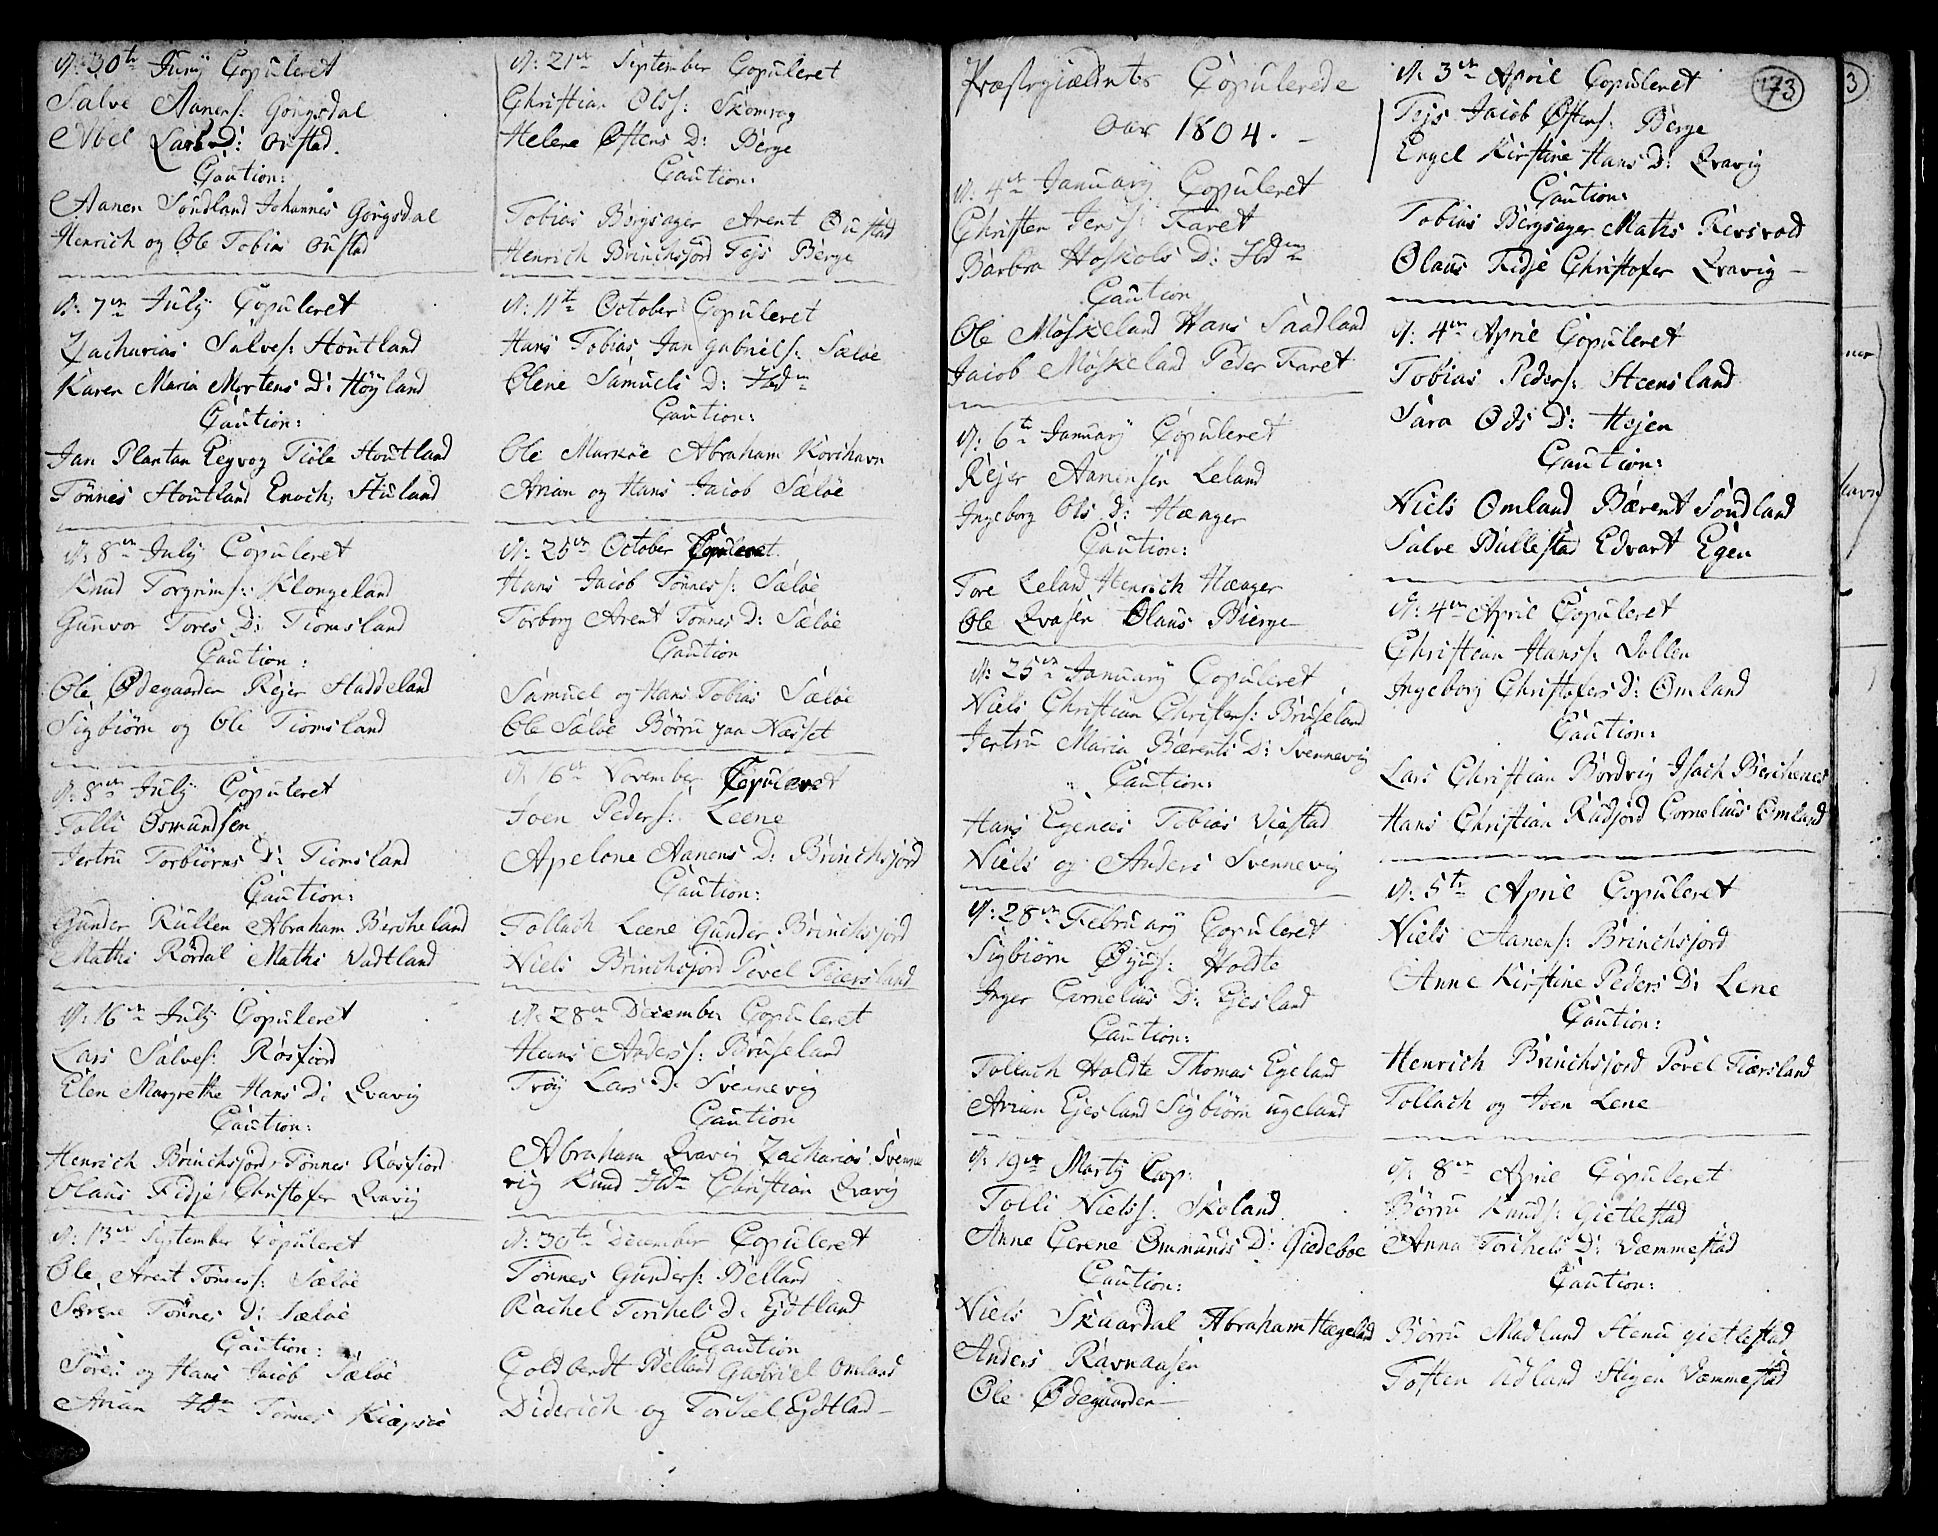 D: 30te Juny Copuleret
Salve Aanens: Gongsdal
Abel Lars D: Oustad.
Caution:
Aanen Sondland Johannes Gongsdal
Henrich og Ole Tobias Oustad
D: 7de July Copuleret
Zacharias Salves: Houtland
Karen Maria Mortens D: Höyland
Caution:
Jan Plantan Eegvog Tiöle Houtland
Tönnes Houtland Enoch Stuland
D: 8de July Copuleret
Knud Torgrims: Klongeland
Gunvor Tores D: Tiomsland
Caution:
Ole Ødegaarden Rejer Haddeland
Sigbiörn og Ole Tiomsland
D: 8de July Copuleret
Tolli Osmundsen
Jertru Torbiörns D: Tiomsland
Caution:
Gunder Kullen Abraham Bercheland
Mathis Rördal Mathis Vadtland
D: 16de July Copuleret
Lars Salves: Rosfiord
Elen Margrethe Hans D: Qvavig
Caution:
Henrich Brinchsjord, Tönnes Rosfiord
Olaus Fidje Christofer Qvavig
D: 13de September Copuleret
Ole Arent Tönnes: Sæløe
Sørene Tönnes D: Sæløe
Caution:
Søren og Hans Jacob Sæløe
Arian Ibdm Tönnes Kiæpsøe
D: 21de September Copuleret
Christian Ols: Skomrag
Helene Østens D: Berge
Caution:
Tobias Bergsager Arent Oustad
Henrich Brinchsjord Tejs Berge
D: 11te October Copuleret
Hans Tobias Jan Gabriels: Sæløe
Olene Samuels D: Ibdm
Caution:
Ole Markøe Abraham Korshavn
Arian og Hans Jacob Sæløe
D: 25de October Copuleret.
Hans Jacob Tönnes: Sæløe
Torborg Arent Tönnes D: Sæløe
Caution
Samuel og Hans Tobias Sæløe
Ole Sæløe Börru paa Næsset
D: 16de November Copuleret
Joen Peders: Leene
Apelone Aanens D: Brinchsjord
Caution:
Tollach Leene Gunder Brinchsjord
Niels Brinchsjord Povel Fiersland
D: 28de December Copuleret
Hans Anders: Bruseland
Tröy Lars D: Svennevig
Caution
Abraham Qvavig Zacharias Svenne
vig Knud Ibdm Christian Qvavig
D: 30te December Copuleret
Tönnes Gunders: Belland
Rachel Torchels D: Eydtland
Caution
Goldberdt Belland Gabriel Omland
Diderich og Torchel Eydtland
Præstegieldets Copulerede
Aar 1804.
D: 4de January Copuleret
Christen Jens: Faret
Barbra Hoskols D: Ibdm
Caution
Ole Møskeland Hans Saadland
Jacob Møskeland Peder Faret
D: 6te January Copuleret
Rejer Aanensen Leland
Ingeborg Ols D: Hæager
Caution:
Tore Leland Henrich Hæager
Ole Qvasen Olaus Bierge
D: 25de January Copuleret
Niels Christian Christens: Bruseland
Jertru Maria Bærents D: Svennevig
Caution:
Hans Egenes Tobias Viestad
Niels og Anders Svennevig
D: 28de February Copuleret
Sigbiörn Øyus: Holdte
Inger Cornelius D: Ejesland
Caution:
Tollach Holdte Thomas Egeland
Arian Ejesland Sigbiörn Ugeland
D: 19de Marty Cop:
Tolli Niels: Skoland
Anne Gerene Ommunds D: Giedeboe
Caution:
Niels Skuardal Abraham Hægeland
Anders Ravnaasen
Ole Ødegaarden
173
D: 3de April Copuleret
Tejs Jacob Østens: Berge
Engel Kirstine Hans D: Qvavig
Caution:
Tobias Bergsager Mathis Kirsvold
Olaus Fidje Christofer Qvavig
D: 4de April Copuleret
Tobias Peders: Steensland
Sara Ods D: Hejen
Caution:
Niels Omland Bærent Sondland
Salve Bullestad Edvart Egen
D: 4de April Copuleret
Christian Hans: Dollen
Ingeborg Christofers D: Omland
Caution:
Lars Christian Bordvig Isach Berchenes
Hans Christian Rudjord Cornelius Omland
D: 5te April Copuleret
Niels Aanens: Brinchsjord
Anne Kirstine Peders D: Lene
Caution:
Henrich Brinchsjord Povel Fiærsland
Tollach og Joen Lene
D: 8de April Copuleret
Börru Knuds: Gietlestad
Anna Torchels D: Væmmestad
Caution:
Börru Madland Stenu Gietlestad
Tosten Udland Stigen Væmmestad
3